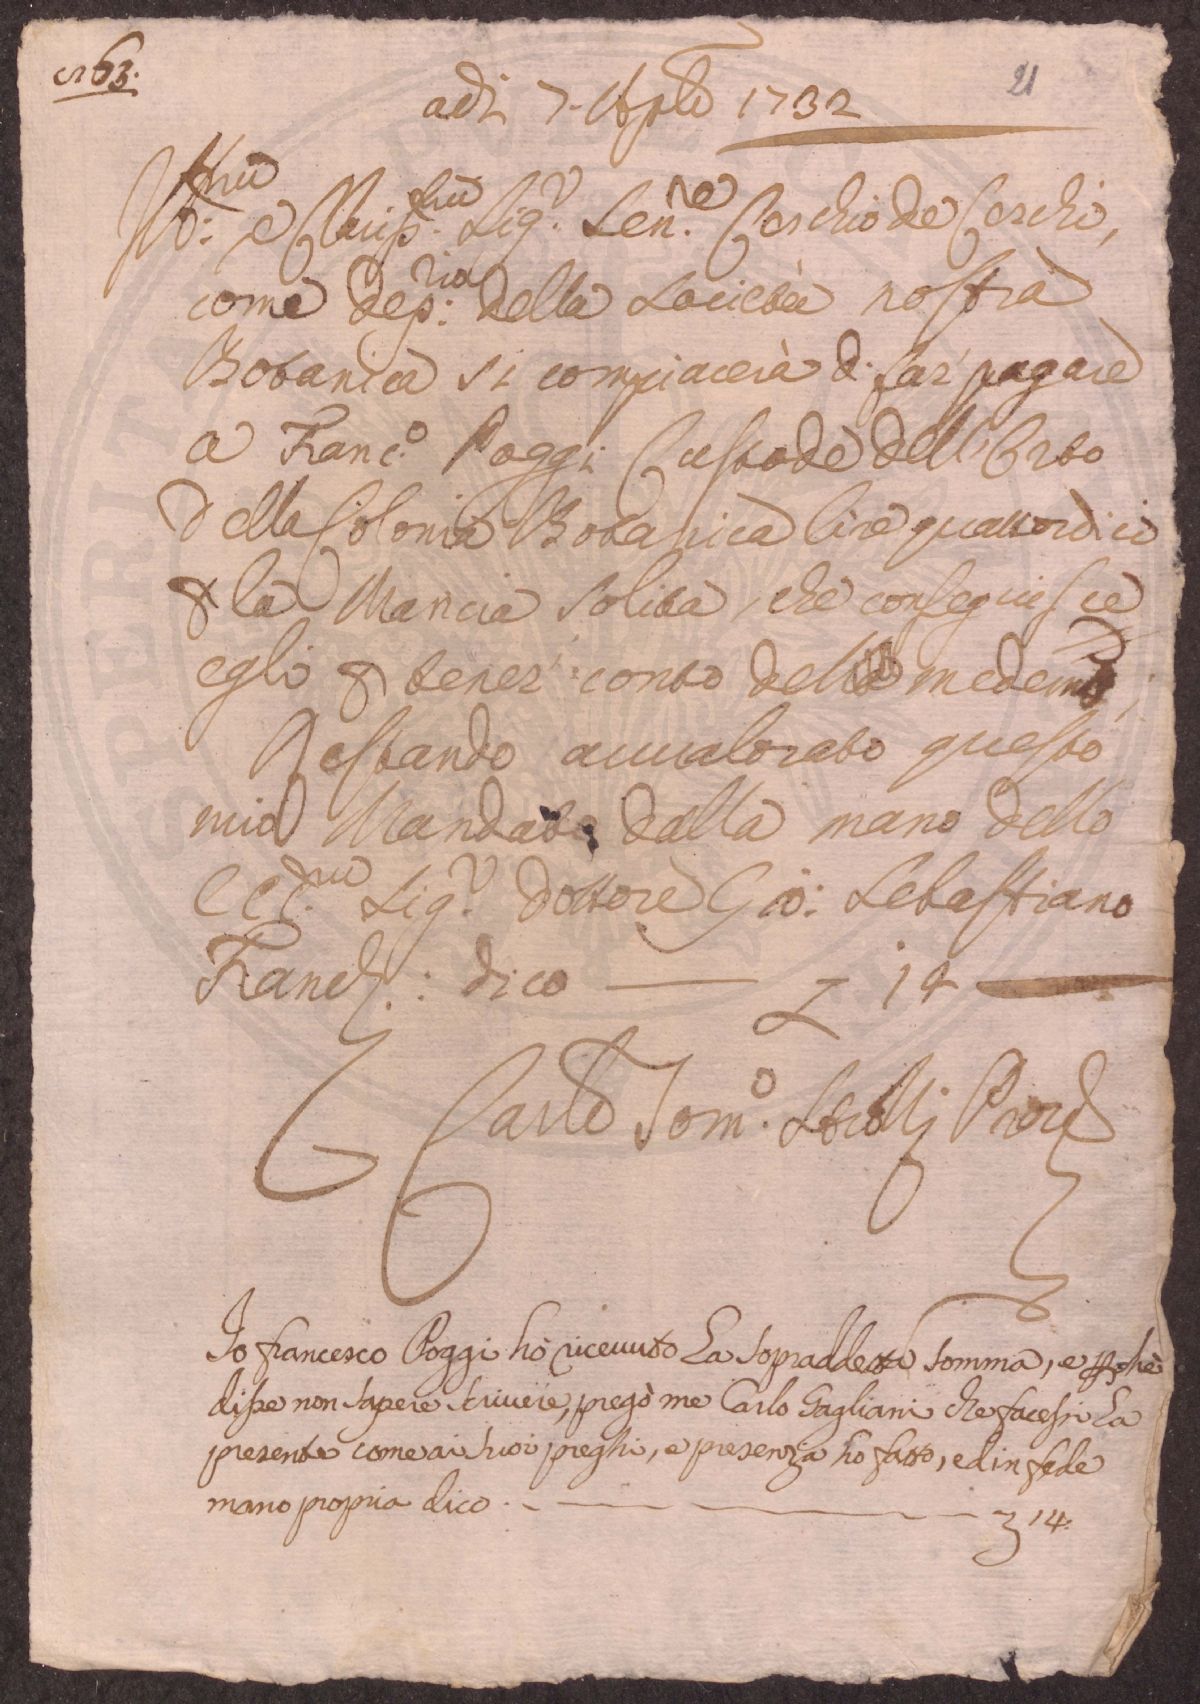 c. 63.
21
adi 7. Aple 1732
Ill:mo e Clariss:mo Sig.r Sen.re Cerchio de Cerchi,
come dep:rio della Società nostra
Botanica si compiacerà di far pagare
a Franc.o Poggi Custode dell'Orto
della Colonia Botanica lire quattordici
p la Mancia solita, che conseguisce
egli p tener conto dell medemo;
Restando avvalorato questo
mio Mandato dalla mano dello
Ecc.mo Sig.r dottore Gio: Sebastiano
Franch.: dico — L 14 —
Carlo Tom.o
Io Francesco Poggi hò ricevuto La Sopraddetta Somma, e pchè
disse non sapere scrivere, pregò me Carlo Gagliani che facessi La
presente come ai suoi preghi, e presenza ho fatto, ed in fede
mano propria dico — L 14.